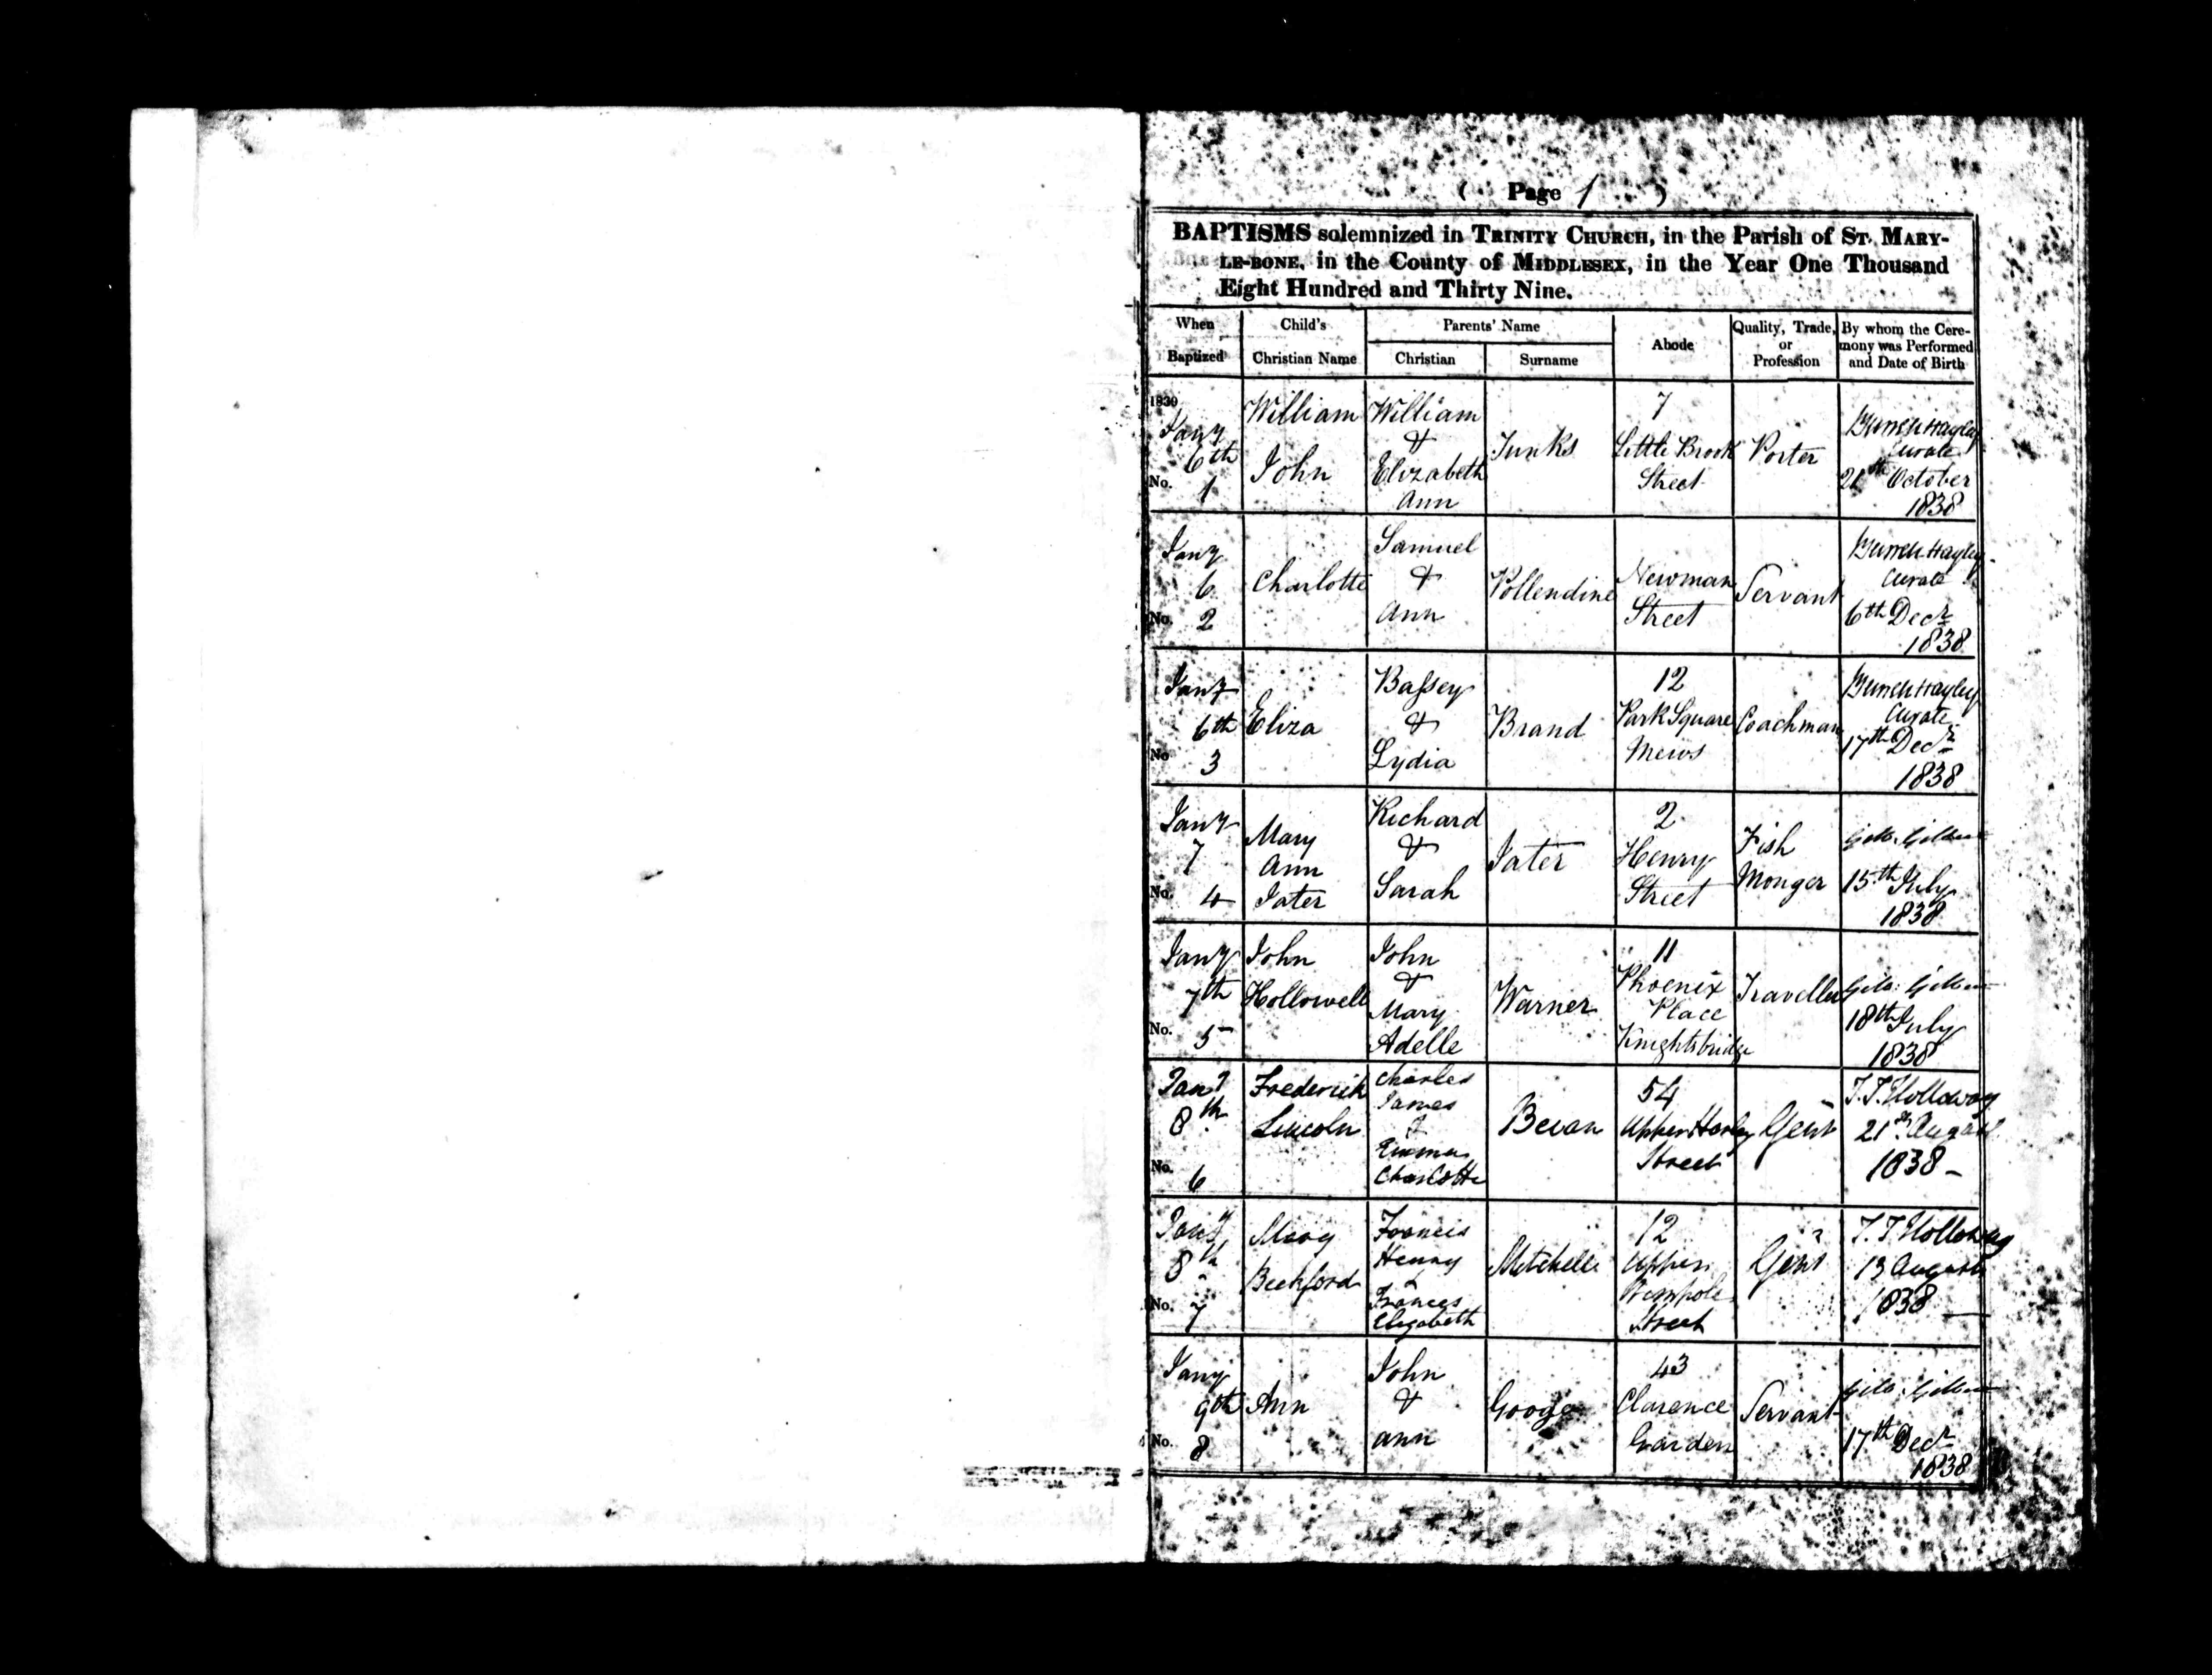 ( Page 1 )
BAPTISMS solemnized in TRINITY CHURCH, in the Parish of ST. MARY-
LE-BONE, in the County of MIDDLESEX, in the Year One Thousand
Eight Hundred and Thirty Nine.
When Baptized
Child's Christian Name
Parents' Name
Christian
Surname
Abode
Quality, Trade, or Profession
By whom the Cere-
mony was Performed
and Date of Birth
1839
Jany
6th
No. 1
William
John
William
&
Elizabeth
Ann
Junks
7
Little Brook
Street
Porter
Hayley
Curate
21st October
1838
Jany
6
No. 2
Charlotte
Samuel
&
Ann
Pollendine
Newman
Street
Servant
Hayley
Curate
6th Decr
1838
Jany
6th
No. 3
Eliza
Bassey
&
Lydia
Brand
12
Park Square
Mews
Coachman
Hayley
Curate
17th Decr
1838
Jany
7
No. 4
Mary
Ann
Jater
Richard
&
Sarah
Jater
2
Henry
Street
Fish
Monger
15th July
1838
Jany
7th
No. 5
John
Hollowell
John
&
Mary
Adelle
Warner
11
Phoenix
Place
Knightsbridge
Traveller
18th July
1838
Jany
8th
No. 6
Frederick
Lincoln
Charles
James
&
Emma
Charlotte
Bevan
54
Upper Harley
Street
Gent
T. T. Holloway
21st August
1838
Jany
8th
No. 7
Mary
Beckford
Francis
Henry
&
Frances
Elizabeth
Mitchell
12
Upper
Wimpole
Street
Gent
T. T. Holloway
13 August
1838
Jany
9th
No. 8
Ann
John
&
Ann
Googe
43
Clarence
Garden
Servant
17th Decr
1838